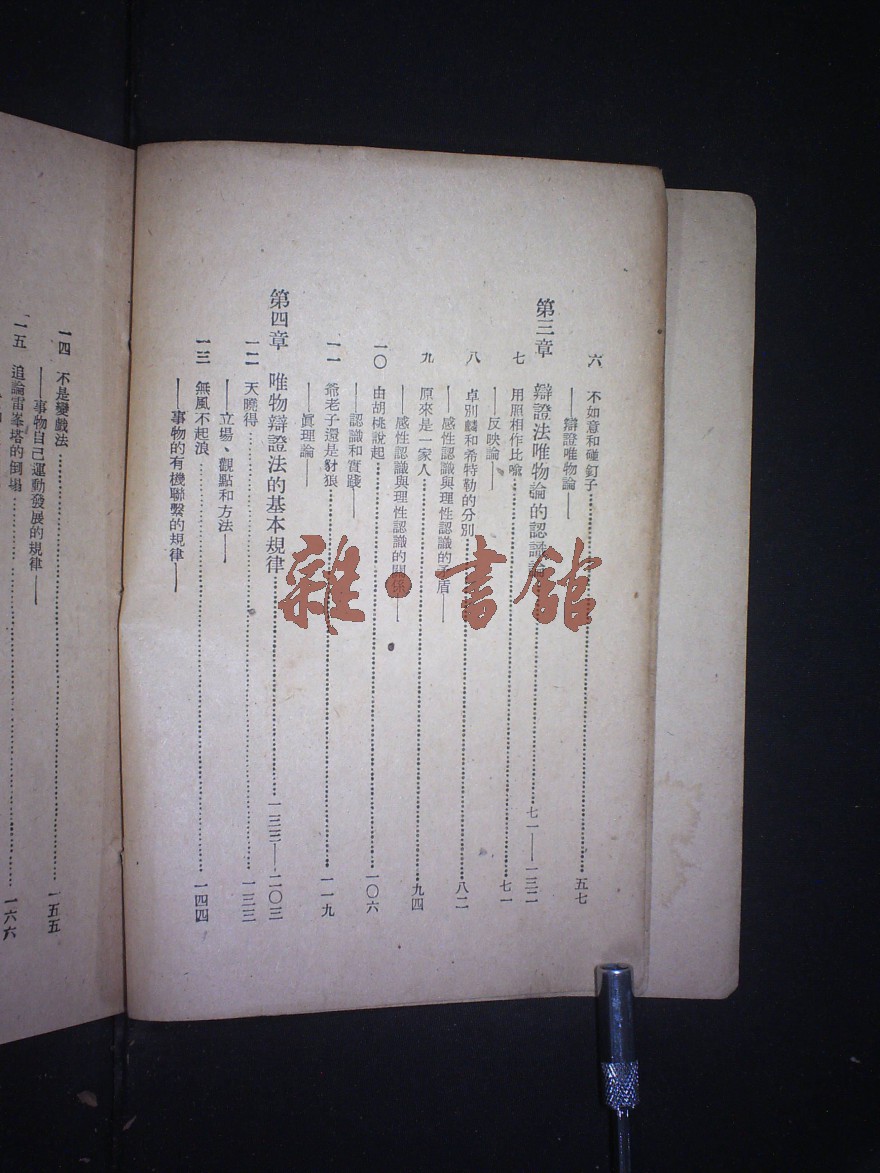 六　不如意和碰釘子…………五七
——辯證唯物論——
第三章　辯證法唯物論的認識論…………七一——一三二
七　用照相作比喻…………七一
——反映論——
八　卓別麟和希特勒的分別…………八二
——感性認識與理性認識的矛盾——
九　原來是一家人…………九四
——感性認識與理性認識的關係——
一〇　由胡桃說起…………一〇六
——認識和實踐——
一一　爺老子還是豺狼…………一一九
——眞理論——
第四章　唯物辯證法的基本規律…………一三三——二〇三
一二　天曉得…………一三三
——立場、觀點和方法——
一三　無風不起浪…………一四四
——事物的有機聯繫的規律——
一四　不是變戲法…………一五五
——事物自己運動發展的規律——
一五　追論雷峯塔的倒塌…………一六六
雜·書館